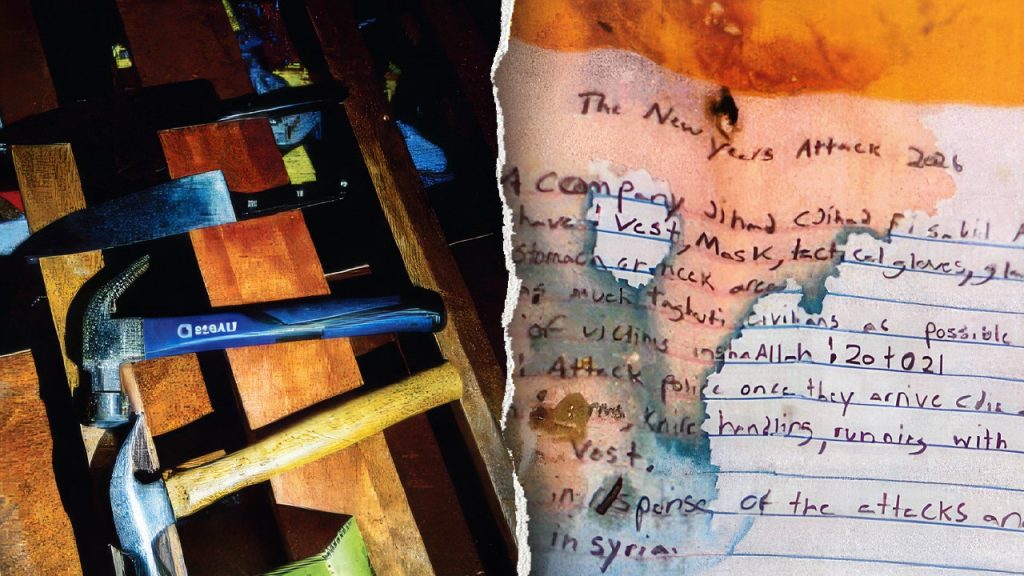 The New Years Attack 2026
Company Jihad Fi sabil
have: vest, Mask, tactical gloves,
stomach or neck area
much taghuti civilians as possible
of victims inshaAllah : 20 to 21
Attack police once they arrive
Knife handling, running with
Vest.
in response of the attacks
in syria.